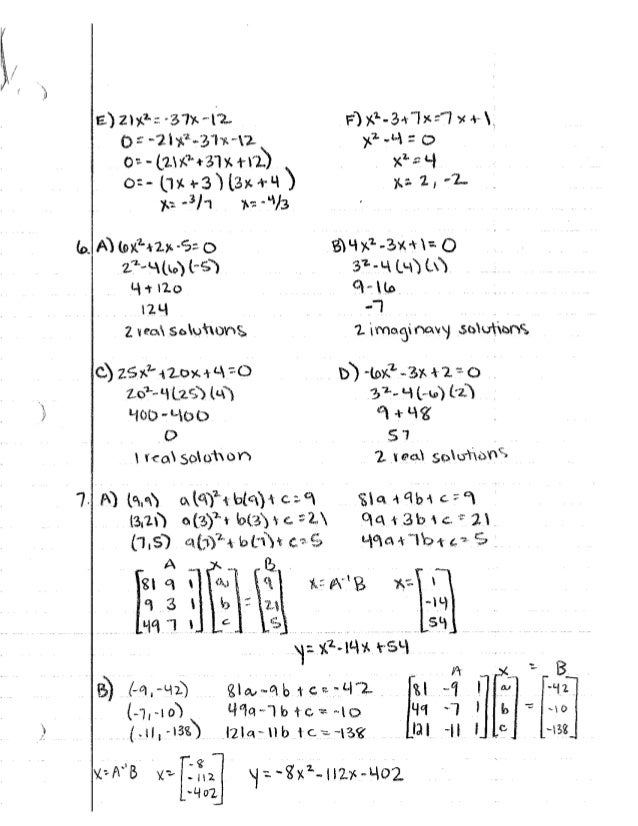 E) 21x² = -37x - 12
0 = -21x² - 37x - 12
0 = -(21x² + 37x + 12)
0 = -(7x + 3)(3x + 4)
x = -3/7 x = -4/3
F) x² - 3 + 7x = 7x + 1
x² - 4 = 0
x² = 4
x = 2, -2
6. A) 6x² + 2x - 5 = 0
2² - 4(6)(-5)
4 + 120
124
2 real solutions
B) 4x² - 3x + 1 = 0
3² - 4(4)(1)
9 - 16
-7
2 imaginary solutions
C) 25x² + 20x + 4 = 0
20² - 4(25)(4)
400 - 400
0
1 real solution
D) -6x² - 3x + 2 = 0
3² - 4(-6)(2)
9 + 48
57
2 real solutions
7. A) (9,9) a(9)² + b(9) + c = 9 81a + 9b + c = 9
(3,21) a(3)² + b(3) + c = 21 9a + 3b + c = 21
(7,5) a(7)² + b(7) + c = 5 49a + 7b + c = 5
A X B
[81 9 1] [a] = [9]
[9 3 1] [b] [21]
[49 7 1] [c] [5]
X = A⁻¹B X = [1 -14 54]
y = x² - 14x + 54
B) (-9, -42) 81a - 9b + c = -42
(-7, -10) 49a - 7b + c = -10
(-11, -138) 121a - 11b + c = -138
A X = B
[81 -9 1] [a] = [-42]
[49 -7 1] [b] [-10]
[121 -11 1] [c] [-138]
X = A⁻¹B X = [-8 -112 -402] y = -8x² - 112x - 402